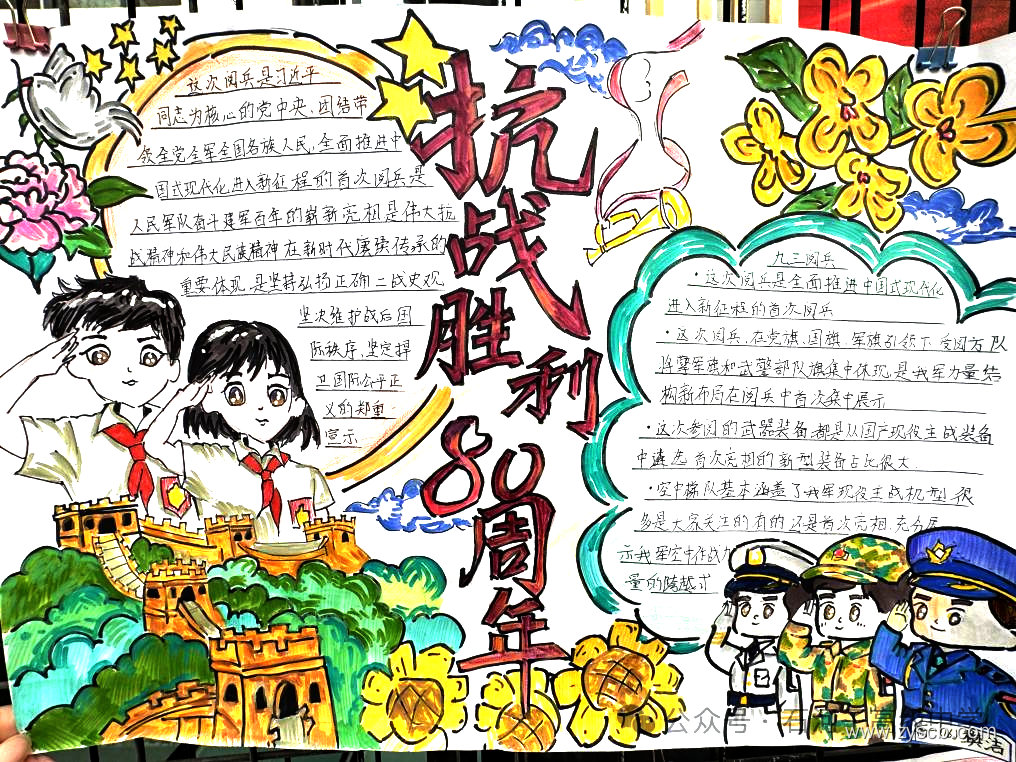 抗战胜利80周年
这次阅兵是习近平
同志为核心的党中央,团结带
领全党全军全国各族人民,全面推进中
国式现代化进入新征程的首次阅兵是
人民军队奋斗建军百年的崭新亮相是伟大抗
战精神和伟大民族精神在新时代赓续传承的
重要体现,是坚持弘扬正确二战史观
坚决维护战后国
际秩序,坚定捍
卫国际公平正
义的郑重
宣示
九三阅兵
·这次阅兵是全面推进中国式现代化
进入新征程的首次阅兵
·这次阅兵,在党旗、国旗、军旗引领下受阅方队
军旗和武警部队旗集中体现,是我军力量结
构新布局在阅兵中首次集中展示
·这次参阅的武器装备,都是从国产现役主战装备
中遴选,首次亮相的新型装备占比很大.
·空中梯队基本涵盖了我军现役主战机型,很
多是大家关注的有的还是首次亮相,充分展
示我军空中作战力
量的跨越式
公众号·石河子高级中学
www.zyscb.com